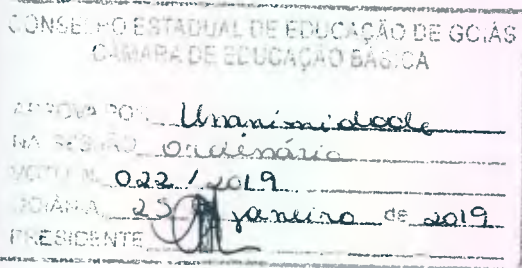 CONSELHO ESTADUAL DE EDUCAÇÃO DE GOIÁS
CÂMARA DE EDUCAÇÃO BÁSICA
APROVA POR Unanimidade
NA SESSÃO Ordinária
VOTO N. 022 / 2019
GOIÂNIA, 25 janeiro de 2019
PRESIDENTE